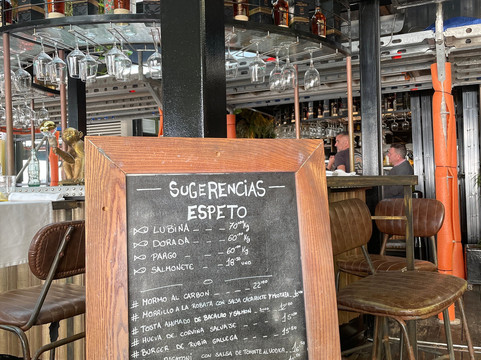 SUGERENCIAS
ESPETO
LUBINA 70⁰⁰ Kg
DORADA 60⁰⁰ Kg
PARGO 60⁰⁰ Kg
SALMONETE 18⁰⁰ UND
# MORMO AL CARBON 22⁰⁰
# MORRILLO A LA ROBATA CON SALSA
# TOSTA AHUMADO DE BACALAO Y SALMON
# HUEVA DE CORVINA SALVAJE
# BURGER DE RUBIA GALLEGA
CON SALSA DE TOMATE